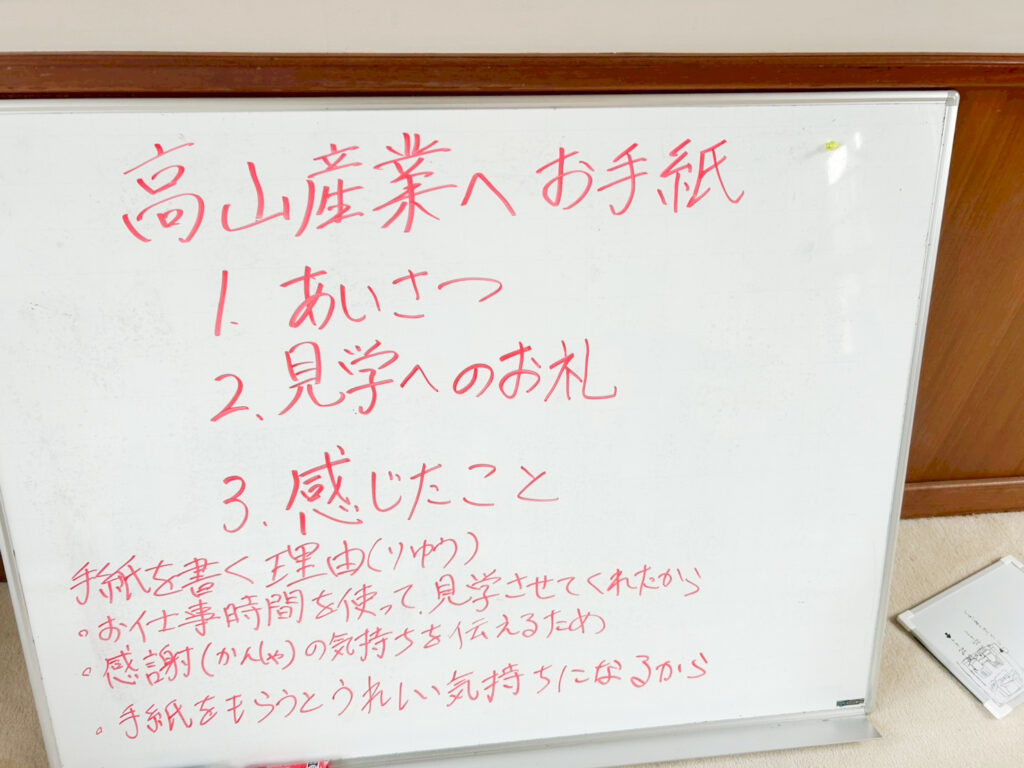 高山産業へお手紙
1. あいさつ
2. 見学へのお礼
3. 感じたこと
手紙を書く理由(りゆう)
。お仕事時間を使って、見学させてくれたから
。感謝(かんしゃ)の気持ちを伝えるため
。手紙をもらうとうれしい気持ちになるから